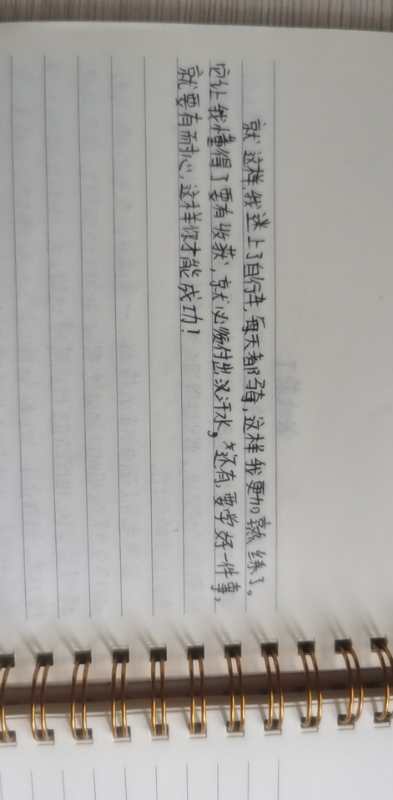 就这样，我迷上了自行车，每天都骑，这样我更加熟练了。
它让我懂得了要有收获，就必须付出汗水。还有，要学好一件事，
就要有耐心，这样你才能成功！